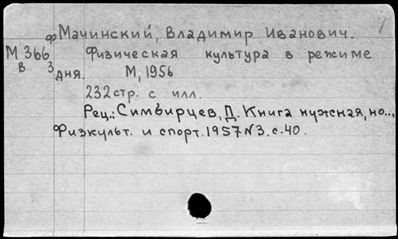 ф Мачинский, Владимир Иванович.
М 366 Физическая культура в режиме
в 3 дня. М, 1956
232 стр. с илл.
Рец.: Симвирцев, Д. Книга нужная, но..,
Физкульт. и спорт. 1957 №3. с. 40.